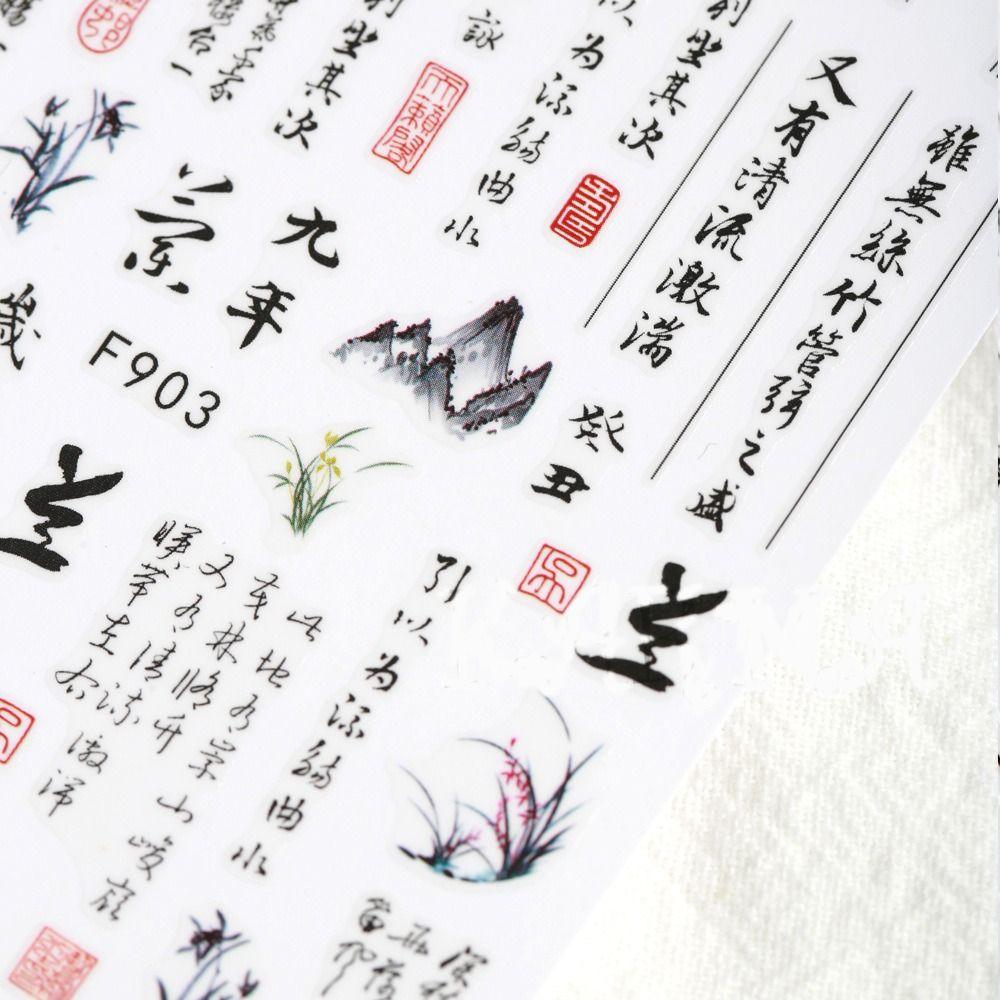 雖無絲竹管弦之盛
又有清流激湍
列坐其次
以为流觴曲水
詠
天籟閣
列坐其次
九年
蘭
歲
F903
癸丑
兰
兰
引以为流觴曲水
此地有崇山峻嶺
茂林脩竹
又有清流激湍
暎帶左右